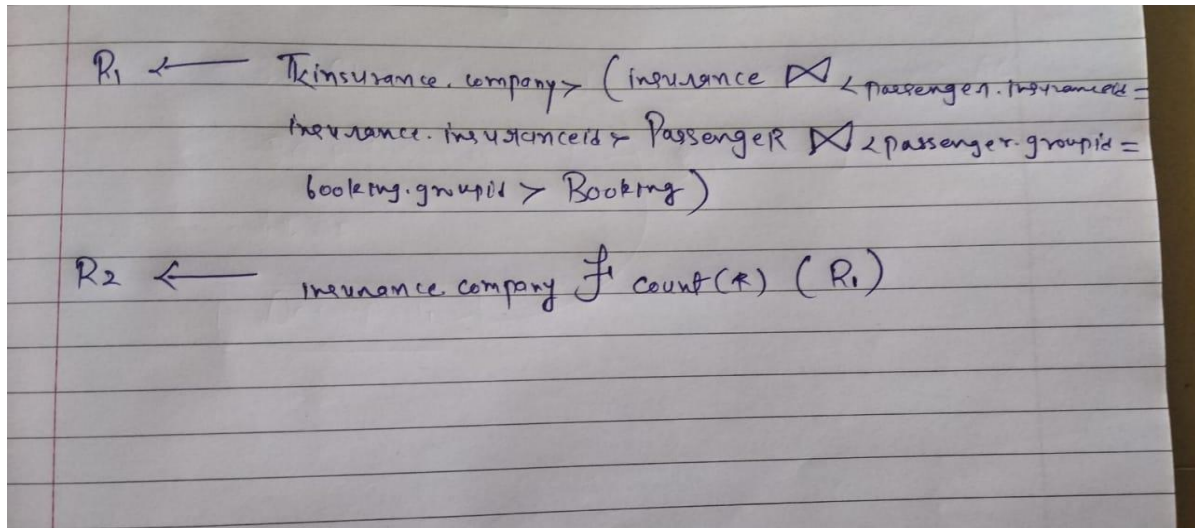 R₁ ← π<insurance.company> (insurance ⋈ <passenger.insuranceid =
insurance.insuranceid> Passenger ⋈ <passenger.groupid =
booking.groupid> Booking)
R2 ← insurance.company ℱ count(*) (R₁)